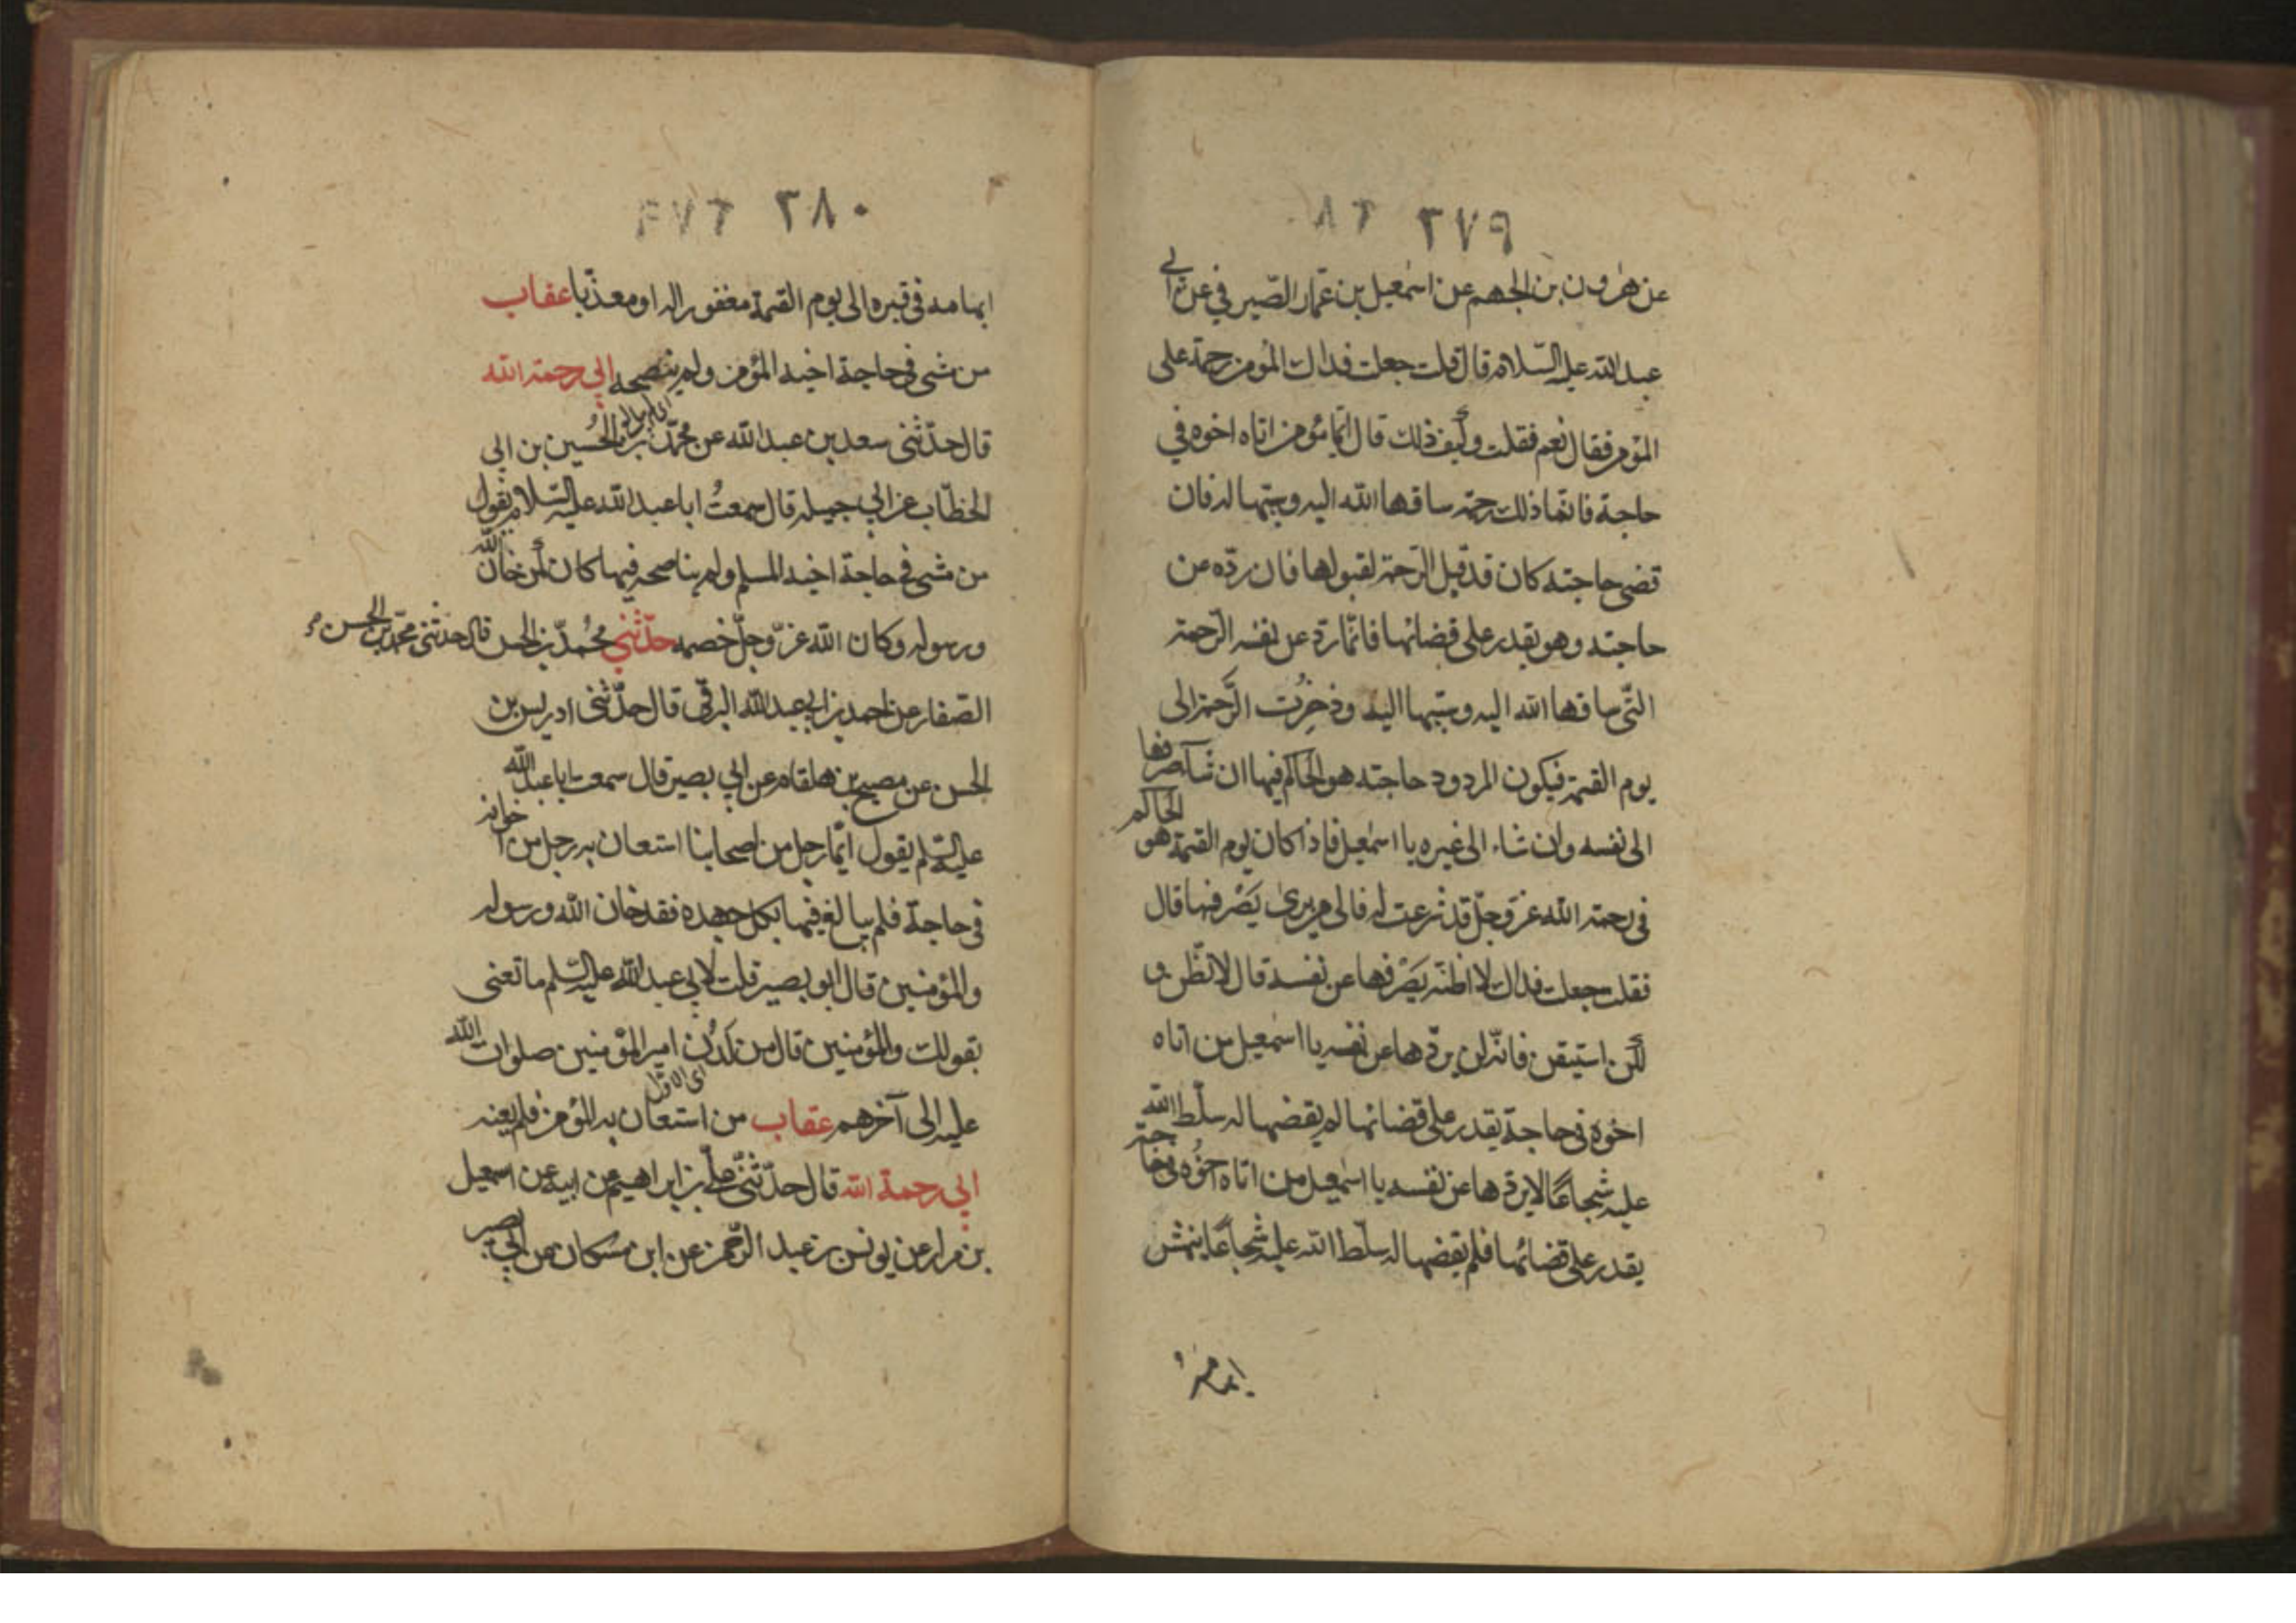 ٢٧٩
عن هرون بن الجهم عن اسمعيل بن عمّار الصّيرفي عن ابي
عبد الله عليه السّلام قال قلت جعلت فداك المؤمن رحمة على
المؤمن فقال نعم فقلت وكيف ذلك قال ايّما مؤمن اتاه اخوه في
حاجة فانّما ذلك رحمة ساقها الله اليه وسبّبها له فان
قضى حاجته كان قد قبل الرّحمة لقبولها فان ردّه عن
حاجته وهو يقدر على قضائها فانّما ردّ عن نفسه الرّحمة
التّي ساقها الله اليه وسبّبها اليه وذخرت الرَّحمة الى
يوم القيمة فيكون المردود حاجته هو الحاكم فيها ان شاء صرفها
الى نفسه وان شاء الى غيره يا اسمعيل فاذا كان يوم القيمة هو الحاكم
في رحمة الله عزّ وجلّ قد شرعت له فالى من يرى يَصْرفها قال
فقلت جعلت فداك لا اظنّه يَصْرفها عن نفسه قال لا تظنّ و
لكن استيقن فانّه لن يردّها عن نفسه يا اسمعيل من اتاه
اخوه في حاجة يقدر على قضائها لم يقضها له سلّط الله
عليه شجاعًا لا يردّها عن نفسه يا اسمعيل من اتاه اخوُه في حاجة
يقدر على قضائها فلم يقضها له سلّط الله عليه شجاعًا ينهش
ابهامه
٢٨٠
ابهامه في قبره الى يوم القيمة مغفورا له او معذّبا عقاب
من مشى في حاجة اخيه المؤمن ولم ينصحه ابي رحمة الله
قال حدّثني سعد بن عبد الله عن محمّد بن الحُسين بن ابي
الخطّاب عن ابي جميله قال سمعتُ ابا عبد الله عليه السّلام يقول
من مشى في حاجة اخيه المسلم ولم يناصحه فيها كان كمن خان الله
ورسوله وكان الله عزّ وجلّ خصمه حدّثني محُمدّ بن الحسن قال حدثني محمّد بن الحسن
الصّفار عن احمد بن ابي عبد الله البرقي قال حدّثني ادريس بن
الحسن عن مصبح بن هلقام عن ابي بصير قال سمعت ابا عبد الله
عليه السّلم يقول ايّما رجل من اصحابنا استعان به رجل من اخوانه
في حاجة فلم يبالغ فيها بكل جهده فقد خان الله ورسوله
والمؤمنين قال ابو بصير قلت لابي عبد الله عليه السّلم ما تعني
بقولك والمؤمنين قال من لَدُن امير المؤمنين صلوات الله
عليه الى آخرهم عقاب من استعان به المؤمن فلم يعنه
ابي رحمة الله قال حدّثني علّي بن ابراهيم عن ابيه عن اسمعيل
بن مرار عن يونس بن عبد الرّحمن عن ابن مسكان عن ابي بصير